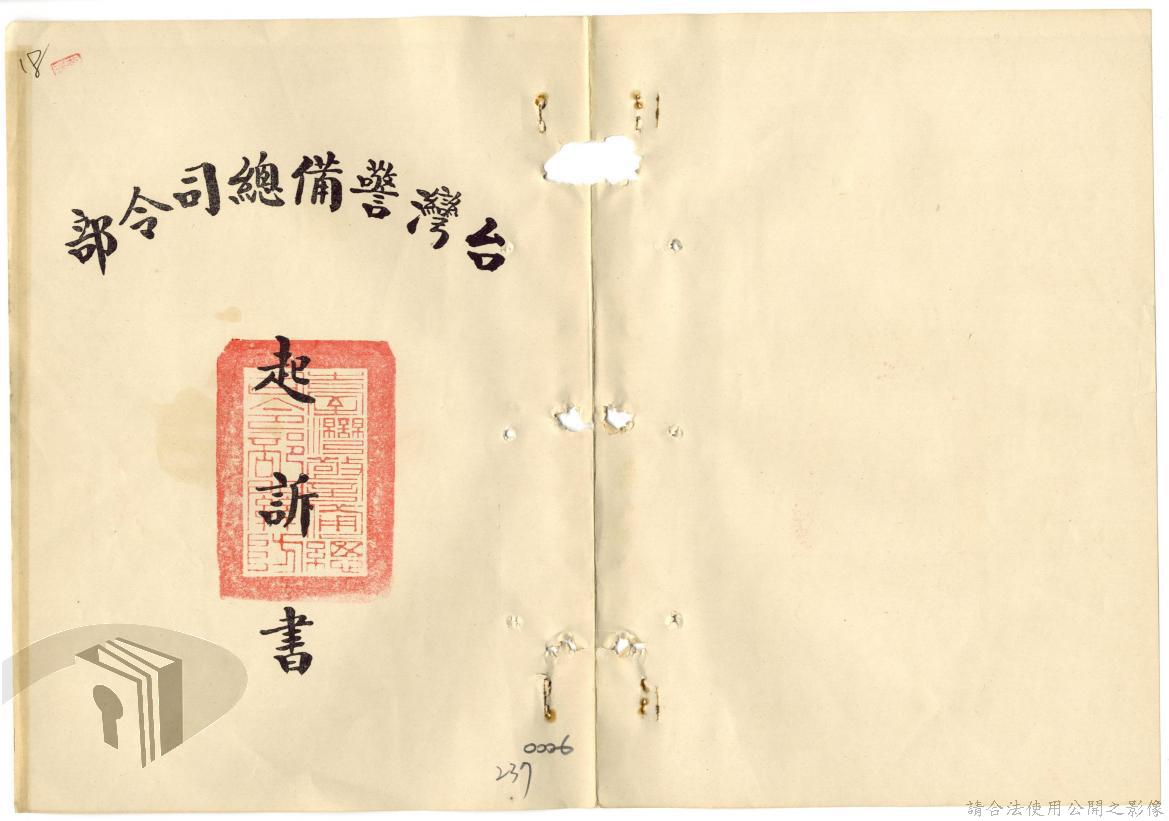 18
台灣警備總司令部
起訴書
臺灣警備總
司令部關防
0006
237
請合法使用公開之影像